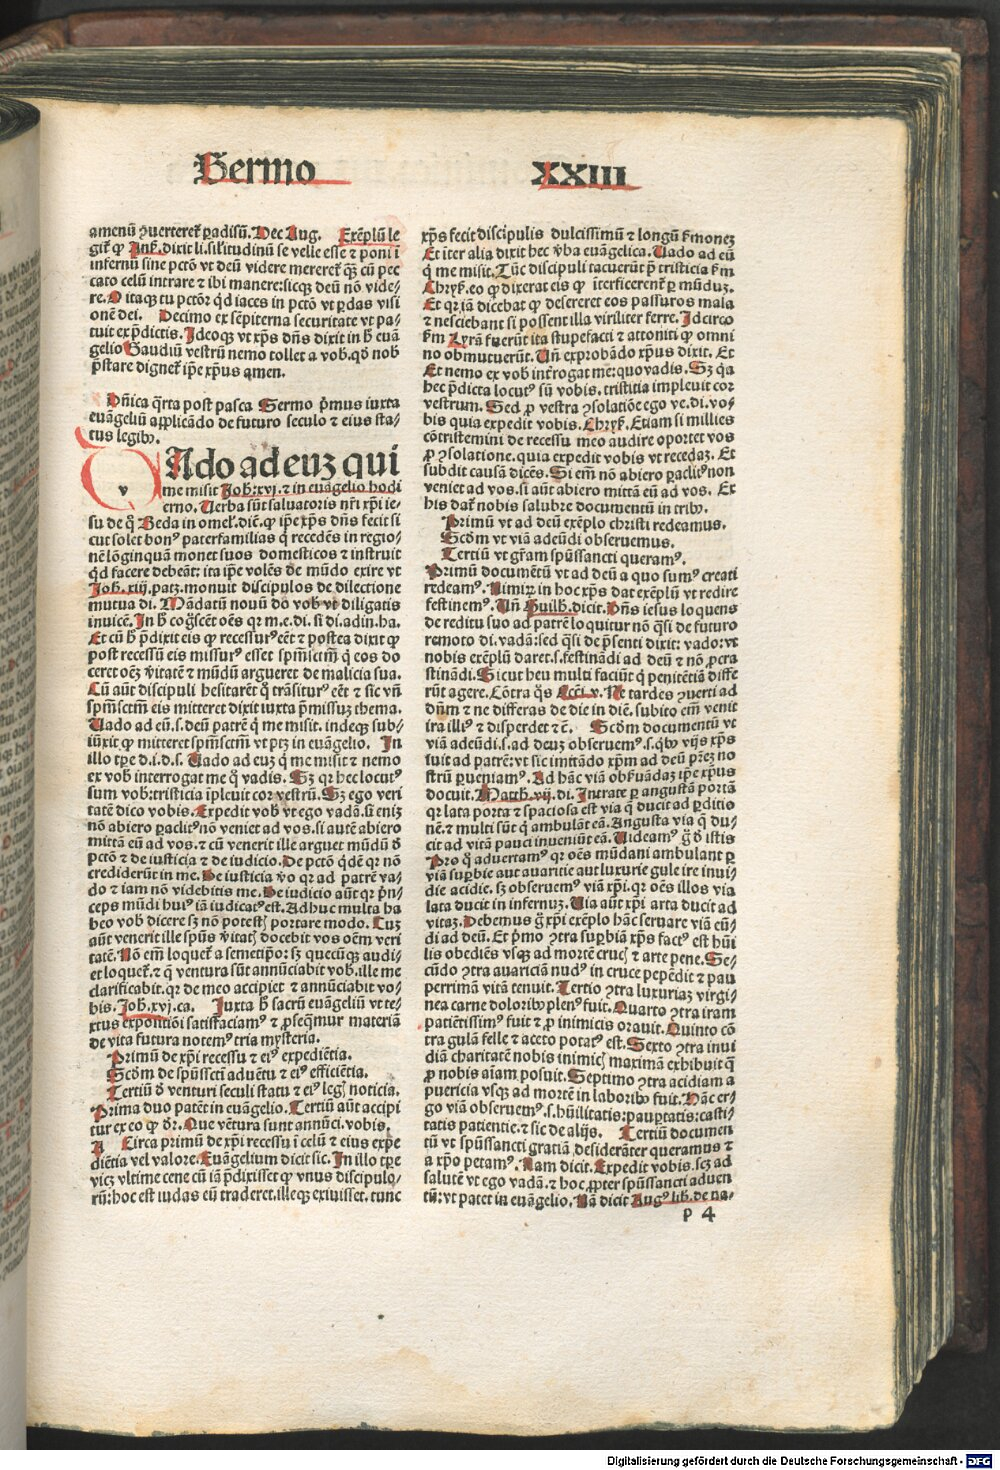 Sermo XXIII
amenū ꝓuerteret᷑ ꝑadisū. Dec Aug. Exēplū le
git᷑ ꝙ Ans. dixit li. sil'itudinū se velle esse ⁊ poni ī
infernū sine pctō vt deū videre mereret᷑ ꝙȝ cū pec
cato celū intrare ⁊ ibi manere: sicqȝ deū nō vide-
re. O itaqȝ tu pctōr qd iaces in pctō vt ꝑdas visi
onē dei. Decimo ex sēpiterna securitate vt pa-
tuit ex p̄dictis. Ideoqȝ vt xp̄s dn̄s dixit in hͦ euā
gelio Gaudiū vestrū nemo tollet a vob. qd nob
p̄stare dignet᷑ ip̄e xp̄us amen.
Dn̄ica q̈rta post pasca Sermo p̄mus iuxta
euāgeliū applicādo de futuro seculo ⁊ eius sta-
tus legibꝫ.
v
Ado ad euȝ qui
me misit Joh. xvj. ⁊ in euāgelio hodi
erno. Verba sūt saluatoris nr̄i xp̄i ie-
su de q̄ Beda in omel'. diē. ꝙ ip̄e xp̄s dn̄s fecit si
cut solet bonꝰ paterfamilias q̄ recedēs in regio-
nē lōginquā monet suos domesticos ⁊ instruit
qd facere debeāt: ita ip̄e volēs de mūdo exire vt
Joh. xiij. patȝ. monuit discipulos de dilectione
mutua di. Mādatū nouū do vob vt diligatis
inuicē. In hͦ cog̊scēt oēs qr m. e. di. si di. adin. ha.
Et cū hͦ p̄dixit eis ꝙ recessurꝰ eēt ⁊ postea dixit ꝙ
post recessū eis missurꝰ esset spm̄sctm̄ q̄ eos do
ceret oēȝ v̓itatē ⁊ mūdū argueret de malicia sua.
Cū aūt discipuli hesitarēt q̄ trāsiturꝰ eēt ⁊ sic vn̄
spm̄sctm̄ eis mitteret dixit iuxta p̄missuȝ thema.
Vado ad eū. s. deū patrē q̄ me misit. indeqȝ sub-
iūxit ꝙ mitteret spm̄sctm̄ vt ptȝ in euāgelio. In
illo tꝑe d. i. d. s. Vado ad euȝ q̄ me misit ⁊ nemo
ex vob interrogat me q̊ vadis. Sȝ qr hec locutꝰ
sum vob: tristicia īpleuit cor vestrū. Sȝ ego veri
tatē dico vobis. Expedit vob vt ego vadā. si eniȝ
nō abiero paclitꝰ nō veniet ad vos. si autē abiero
mittā eū ad vos. ⁊ cū venerit ille arguet mūdū d̄
pctō ⁊ de iusticia ⁊ de iudicio. De pctō qdē qr nō
crediderūt in me. De iusticia v̓o qr ad patrē va-
do ⁊ iam nō videbitis me. De iudicio aūt qr p̄n-
ceps mūdi huiꝰ iā iudicatꝰ est. Adhuc multa ha
beo vob dicere sȝ nō potestꝭ portare modo. Cuȝ
aūt venerit ille spūs v̓itatꝭ docebit vos oēm veri
tatē. Nō em̄ loquet᷑ a semetip̄o: sȝ quecūqȝ audi-
et loquet᷑. ⁊ q̄ ventura sūt annūciabit vob. ille me
clarificabit. qr de meo accipiet ⁊ annūciabit vo-
bis. Joh. xvj. ca. Juxta hͦ sacrū euāgeliū vt te-
xtus expositiōi satisfaciamꝰ ⁊ ꝓseq̄mur materiā
de vita futura notemꝰ tria mysteria.
Primū de xp̄i recessu ⁊ eiꝰ expediētia.
Scd̓m de spūssctī aduētu ⁊ eiꝰ efficiētia.
Tertiū d̄ venturi seculi statu ⁊ eiꝰ legꝭ noticia.
Prima duo patēt in euāgelio. Tertiū aūt accipi
tur ex eo ꝙ dr̄. Que vētura sunt annūci. vobis.
A Circa primū de xp̄i recessu ī celū ⁊ eius expe
diētia vel valore. Euāgelium dicit sic. In illo tꝑe
vicȝ vltime cene cū iā p̄dixisset ꝙ vnus discipulo-
rū: hoc est iudas eū traderet. illeqȝ exiuisset. tunc
xp̄s fecit discipulis dulcissimū ⁊ longū s̄moneȝ
Et iter alia dixit hec v̓ba euāgelica. Vado ad eū
q̄ me misit. Tūc discipuli tacuerūt p̄ tristicia s̄m
Chrys. eo ꝙ dixerat eis ꝙ īterficerent᷑ ꝑ mūduȝ.
Et qr iā dicebat ꝙ desereret eos passuros mala
⁊ nesciebant si possent illa viriliter ferre. Idcirco
s̄m Lyrā fuerūt ita stupefacti ⁊ attoniti ꝙ omni
no obmutuerūt. Vn̄ exprobādo xp̄us dixit. Et
Et nemo ex vob int̓rogat me: quo vadis. Sȝ q̄a
hec p̄dicta locutꝰ sū vobis. tristitia impleuit cor
vestrum. Sed ꝓ vestra ꝯsolatiōe ego ve. di. vo-
bis quia expedit vobis. Chrys. Etiam si millies
cōtristemini de recessu meo audire oportet vos
ꝓ ꝯsolatione. quia expedit vobis vt recedaȝ. Et
subdit causā dicēs. Si em̄ nō abiero ꝑaclitꝰ non
veniet ad vos. si aūt abiero mittā eū ad vos. Ex
his dat᷑ nobis salubre documentū in tribꝫ.
Primū vt ad deū exēplo christi redeamus.
Scd̓m vt viā adeūdi obseruemus.
Tertiū vt gr̄am spūssancti queramꝰ.
Primū documētū vt ad deū a quo sumꝰ creati
redeamꝰ. Nimirȝ in hoc xp̄s dat exēplū vt redire
festinemꝰ. Vn̄ Guilh. dicit. Dn̄s iesus loquens
de reditu suo ad patrē loquitur nō q̄si de futuro
remoto di. vadā: sed q̄si de p̄senti dixit: vado: vt
nobis exēplū daret. s. festināndi ad deū ⁊ nō ꝓcra
stināndi. Sicut heu multi faciūt q̄ penitētiā diffe
rūt agere. Cōtra q̄s Ecci. v. Ne tardes ꝯuerti ad
dn̄m ⁊ ne differas de die in diē. subito em̄ venit
ira illiꝰ ⁊ disperdet ⁊ c̄. Scd̓m documentū vt
viā adeūdi. s. ad deuȝ obseruemꝰ. s. qbꝫ vijs xp̄s
iuit ad patrē: vt sic imitādo xp̄m ad deū pr̄eȝ no
strū ꝑueniamꝰ. Ad hāc viā obs̓uādaȝ ip̄e xp̄us
docuit. Matth. vij. di. Intrate ꝑ angustā portā
qr lata porta ⁊ spaciosa est via q̄ ducit ad ꝑditio
nē. ⁊ multi sūt q̄ ambulāt eā. Angusta via q̄ du-
cit ad vitā pauci inueniūt eā. Videamꝰ g̊ d̄ istis
Pro q̊ aduertamꝰ qr oēs mūdani ambulant ꝑ
viā suꝑbie aut auaritie aut luxurie gule ire inui-
die acidie. sȝ obseruemꝰ viā xp̄i. qr oēs illos via
lata ducit in infernuȝ. Via aūt xp̄i arta ducit ad
vitaȝ. Debemus g̊ xp̄i exēplo hāc seruare viā eū-
di ad deū. Et p̄mo ꝯtra suꝑbiā xp̄s factꝰ est hūi
lis obediēs vsqȝ ad mortē crucꝭ ⁊ arte pene. Se-
cūdo ꝯtra auariciā nudꝰ in cruce pepēdit ⁊ pau
perrimā vitā tenuit. Tertio ꝯtra luxuriaȝ virgi-
nea carne doloribꝫ plenꝰ fuit. Quarto ꝯtra iram
patiētissimꝰ fuit ⁊ ꝓ inimicis orauit. Quinto cō
tra gulā felle ⁊ aceto potatꝰ est. Sexto ꝯtra inui
diā charitatē nobis inimicꝭ maximā exhibuit q̄
ꝓ nobis aīam posuit. Septimo ꝯtra acidiam a
puericia vsqȝ ad mortē in laboribꝫ fuit. Hāc er-
go viā obseruemꝰ. s. hūilitatis: pauꝑtatis: casti-
tatis patientie. ⁊ sic de alijs. Tertiū documen
tū vt spūssancti gratiā desiderāter queramus ⁊
a xp̄o petamꝰ. Nam dicit. Expedit vobis. scȝ ad
salutē vt ego vadā. ⁊ hoc ꝓpter spūssancti aduen
tū: vt patet in euāgelio. Nā dicit Augꝰ lib. de na-
p 4
Digitalisierung gefördert durch die Deutsche Forschungsgemeinschaft - DFG